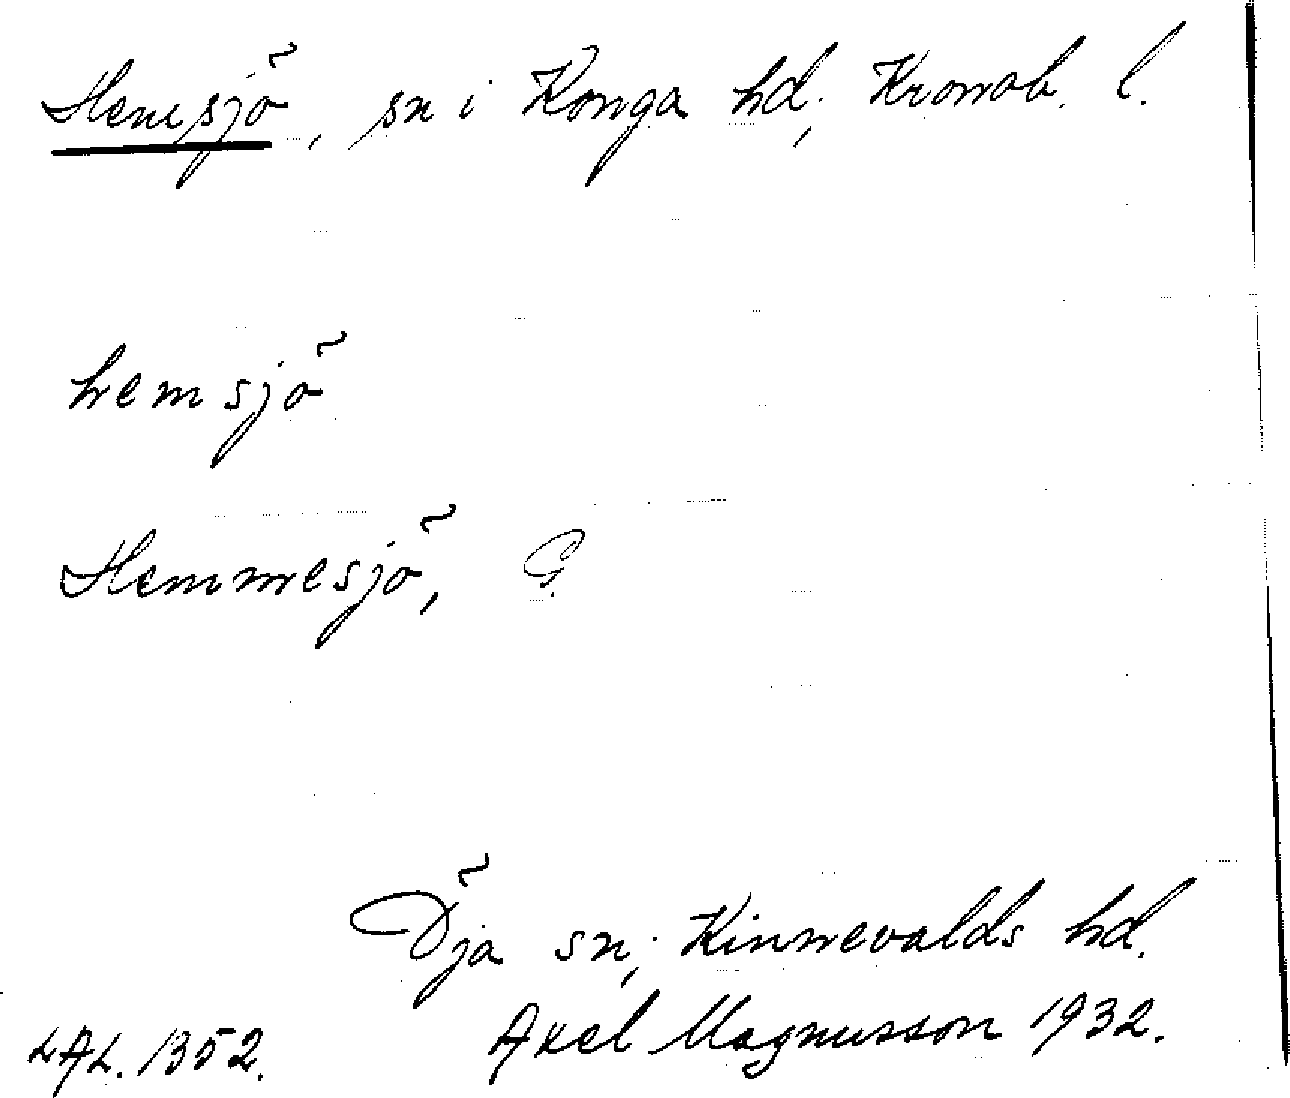 Hemsjö, sn i Konga hd, Kronob. l.
hemsjö
Hemmesjö, G.
Öja sn, Kinnevalds hd.
Axel Magnusson 1932.
LAL. 1352.